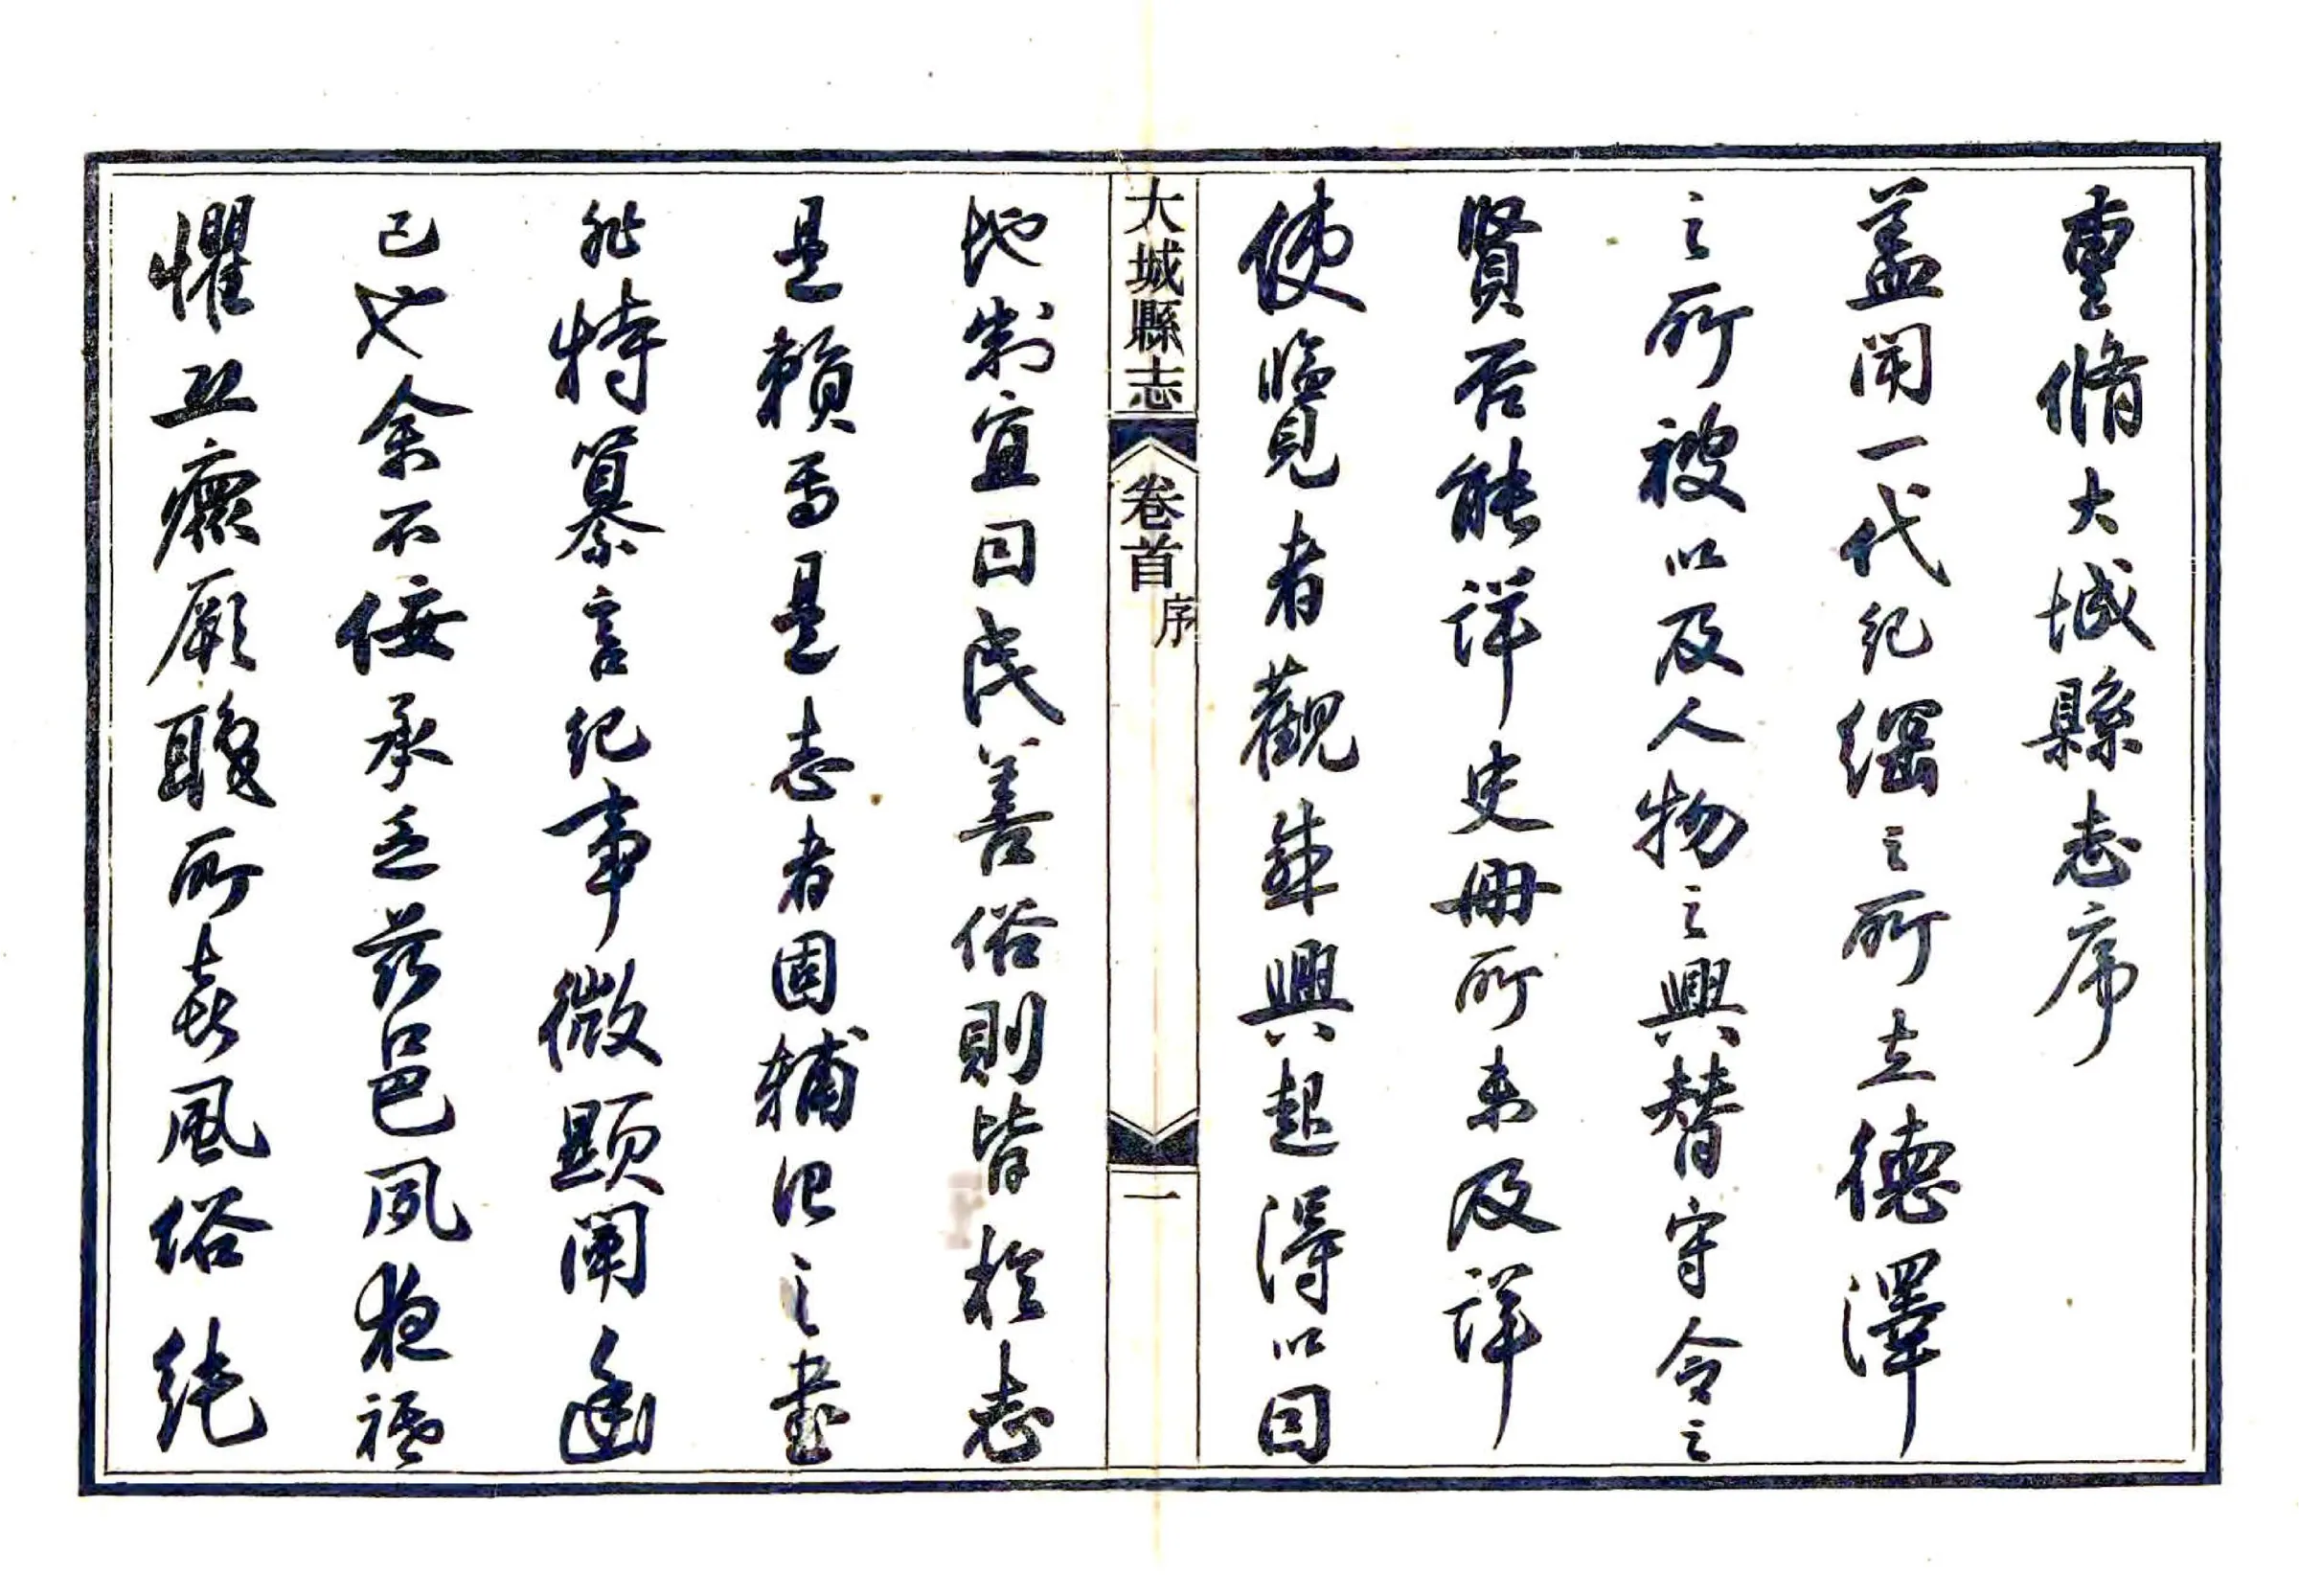 重脩大城縣志序
蓋聞一代紀綱之所立德澤
之所被以及人物之興替守令之
賢否能詳史冊所未及詳
使臨覽者觀興起得以因
大城縣志 卷首 序 一
地制宜因民善俗則皆於志
是賴焉是志者固輔治之書
非特纂言紀事微顯闡幽
已也余不佞承乏茲邑夙夜祗
懼瘝厥職所喜風俗純